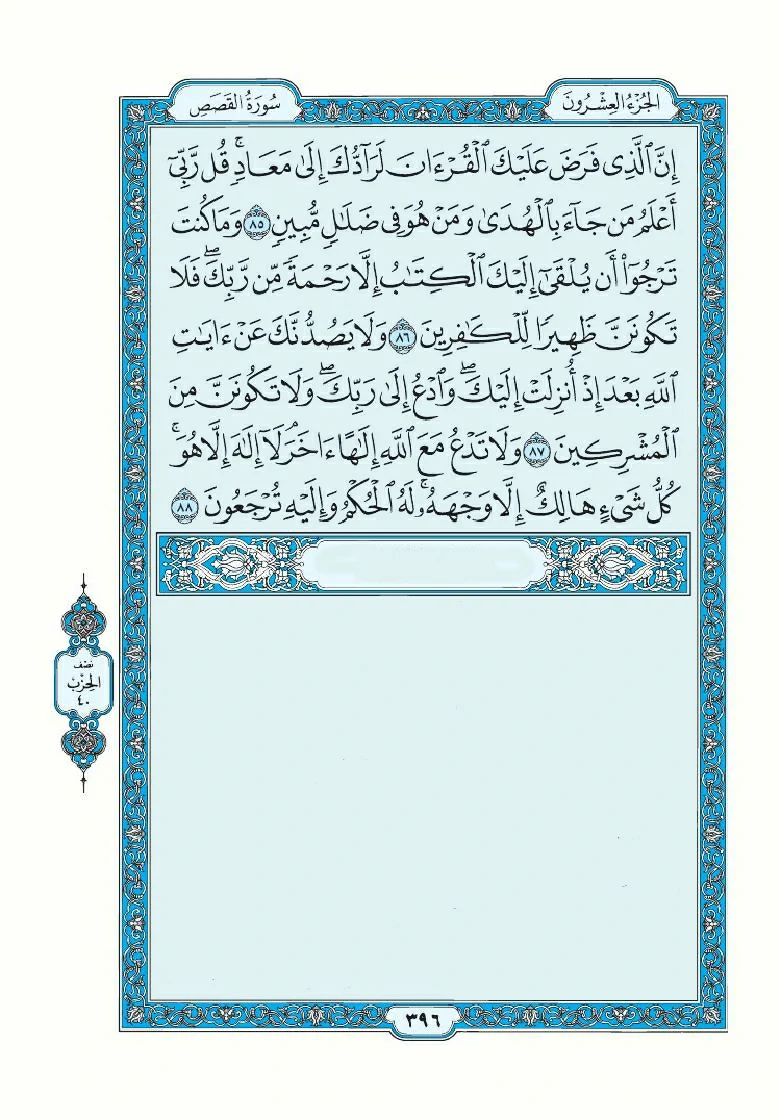 الجُزْءُ العِشْرُونَ
سُورَةُ القَصَصِ
إِنَّ ٱلَّذِى فَرَضَ عَلَيْكَ ٱلْقُرْءَانَ لَرَآدُّكَ إِلَىٰ مَعَادٍۚ قُل رَّبِّىٓ
أَعْلَمُ مَن جَآءَ بِٱلْهُدَىٰ وَمَنْ هُوَ فِى ضَلَٰلٍ مُّبِينٍ ٨٥ وَمَا كُنتَ
تَرْجُوٓا۟ أَن يُلْقَىٰٓ إِلَيْكَ ٱلْكِتَٰبُ إِلَّا رَحْمَةً مِّن رَّبِّكَۖ فَلَا
تَكُونَنَّ ظَهِيرًا لِّلْكَٰفِرِينَ ٨٦ وَلَا يَصُدُّنَّكَ عَنْ ءَايَٰتِ
ٱللَّهِ بَعْدَ إِذْ أُنزِلَتْ إِلَيْكَۖ وَٱدْعُ إِلَىٰ رَبِّكَۖ وَلَا تَكُونَنَّ مِنَ
ٱلْمُشْرِكِينَ ٨٧ وَلَا تَدْعُ مَعَ ٱللَّهِ إِلَٰهًا ءَاخَرَۘ لَآ إِلَٰهَ إِلَّا هُوَۚ
كُلُّ شَىْءٍ هَالِكٌ إِلَّا وَجْهَهُۥۚ لَهُ ٱلْحُكْمُ وَإِلَيْهِ تُرْجَعُونَ ٨٨
نصف
الحِزْب
٤٠
٣٩٦